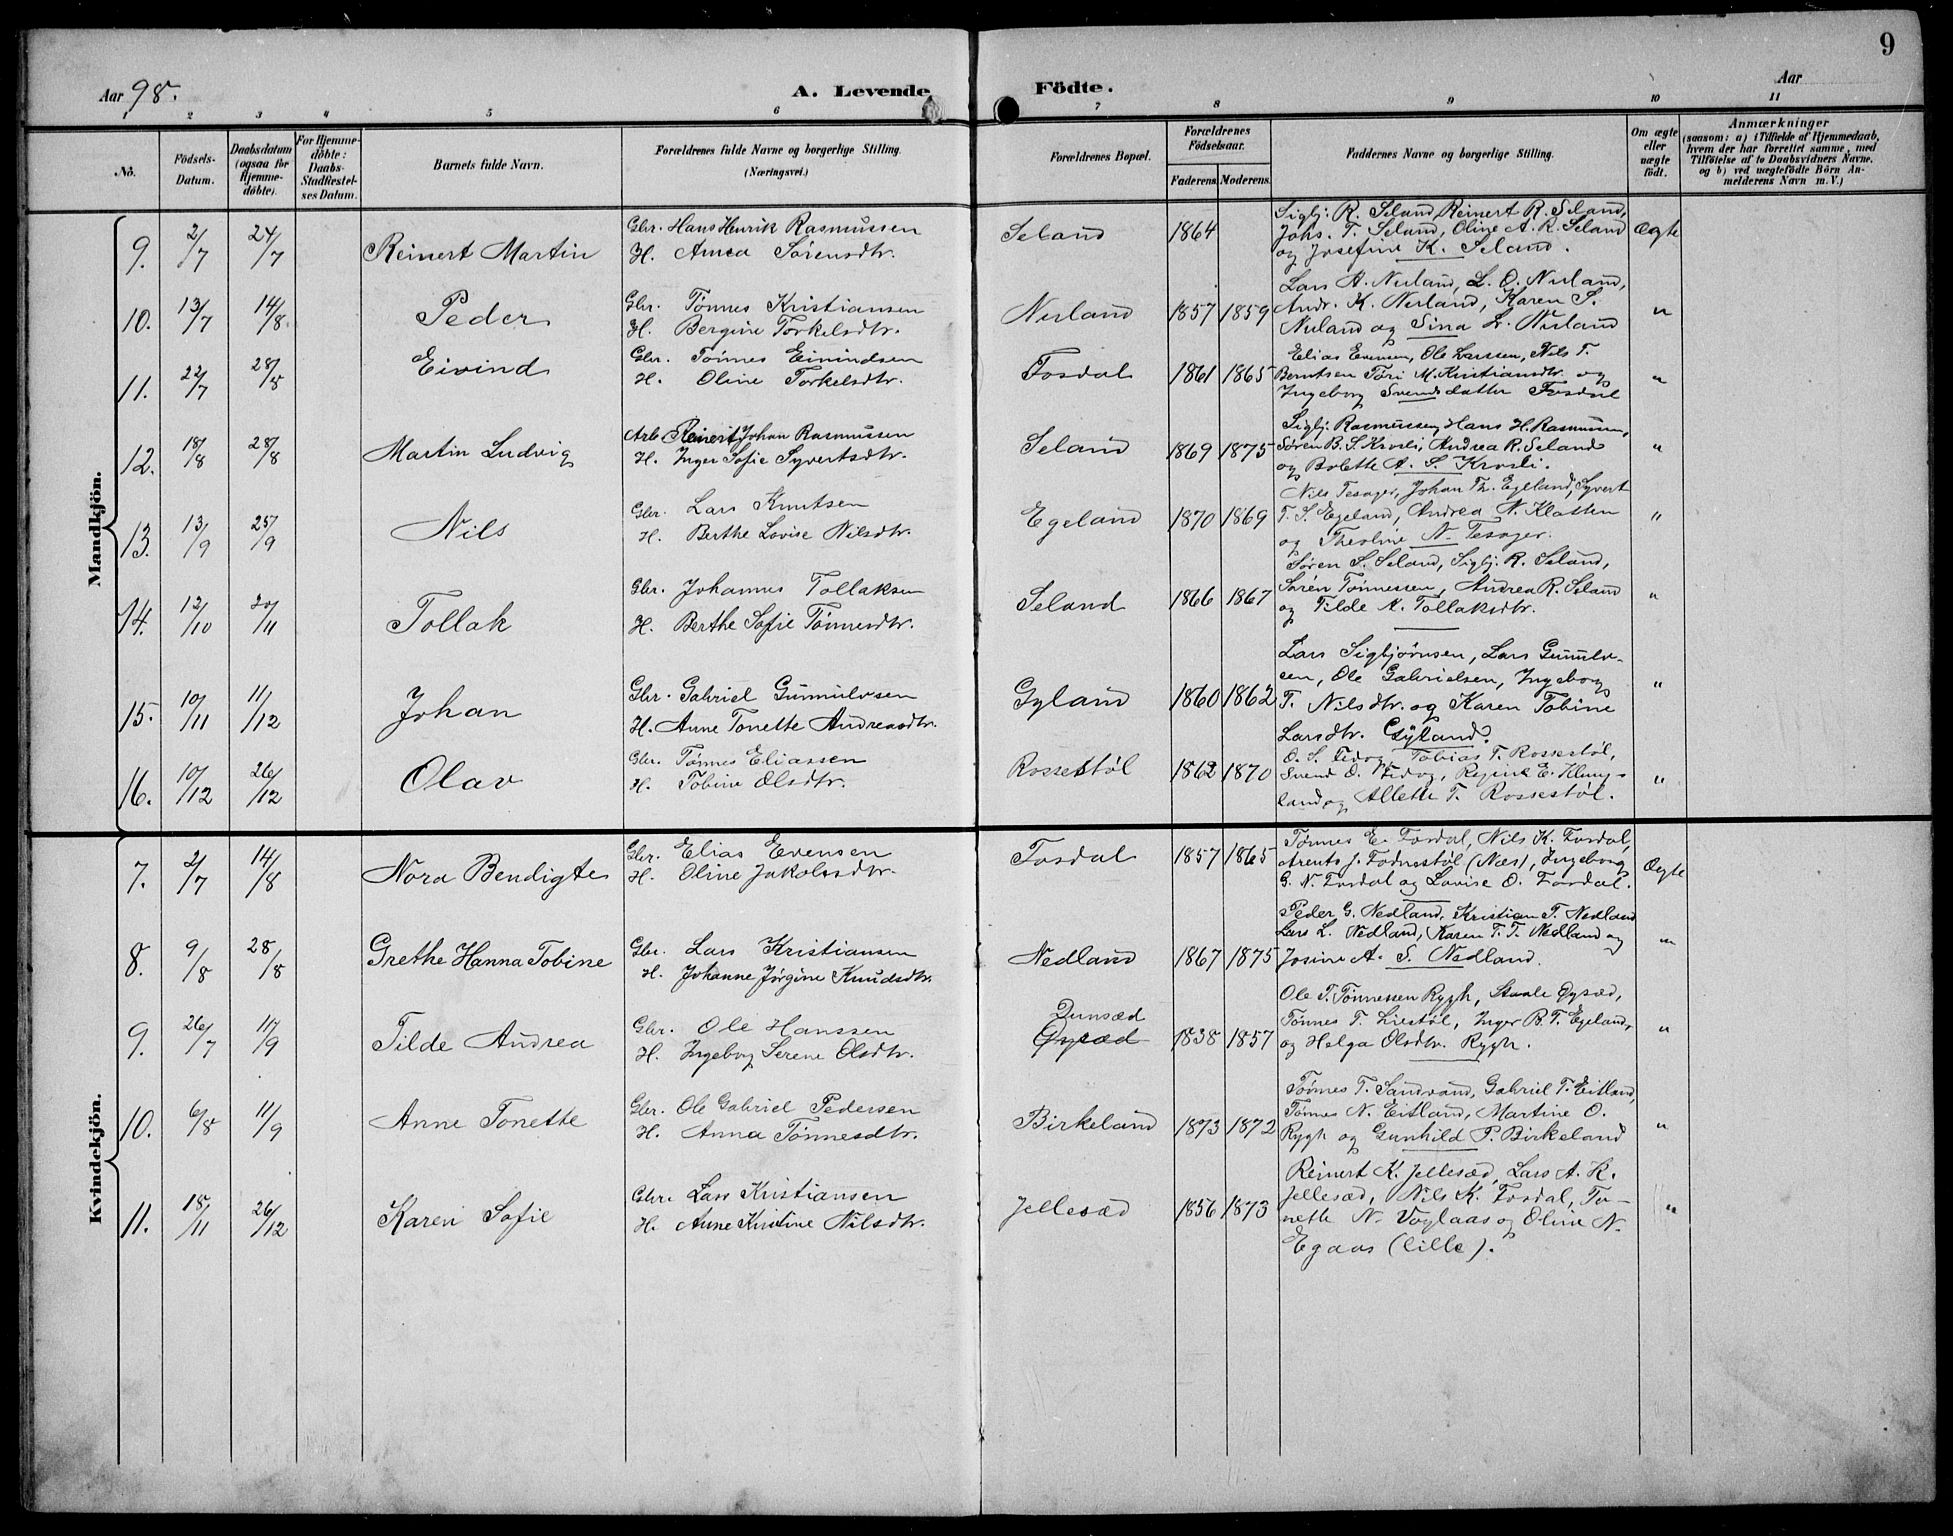 9
Aar 98.
A. Levende Födte.
Aar
1 2 3 4 5 6 7 8 9 10 11
No.
Födsels-Datum.
Daabsdatum (ogsaa for Hjemme-döbte).
For Hjemme-döbte: Daabs-Stadfæstel-ses Datum.
Barnets fulde Navn.
Forældrenes fulde Navne og borgerlige Stilling. (Næringsvei.)
Forældrenes Bopæl.
Forældrenes Födselsaar.
Faderens. Moderens.
Faddernes Navne og borgerlige Stilling.
Om ægte eller uægte födt.
Anmærkninger
(saasom: a) i Tilfælde af Hjemmedaab, hvem der har forrettet samme, med Tilföielse af to Daabsvidners Navne. og b) ved uægtefödte Börn Anmelderens Navn m. V.)
Mandkjön.
9. 2/7 24/7 Reinert Martin
Gbr. Hans Henrik Rasmussen
H. Anna Sørensdtr.
Seland 1864
Sigbj: R. Seland, Reinert R. Seland,
Johs. T. Seland, Oline A. R. Seland
og Josefine K. Seland.
Ægte
10. 13/7 14/8. Peder
Gbr. Tønnes Kristiansen
H. Bergine Torkelsdtr.
Nuland 1857 1859
Lars A. Nuland, L. O. Nuland,
Andr. K. Nuland, Karen S.
Nuland og Sina L. Nuland
"
11. 22/7 28/8 Eivind
Gbr. Tönnes Eivindsen
H. Oline Torkelsdtr.
Fosdal 1861 1865
Elias Evensen, Ole Larssen, Nils T.
Berntsen Töri M. Kristiansdtr. og
Ingeborg Svendsdatter Fosdal
"
12. 18/8 28/8 Martin Ludvig
Arb. Reinert Johan Rasmussen
H. Inger Sofie Syvertsdtr.
Seland 1869 1875
Sigbj: Rasmussen, Hans H. Rasmussen,
Søren B. S. Krosli, Andrea R. Seland
og Bolette A. S. Krosli.
"
13. 13/9 25/9 Nils
Gbr. Lars Knutsen
H. Berthe Lovise Nilsdtr.
Egeland 1870 1869
Nils Tesager, Johan Th. Egeland, Syvert
T. S. Egeland, Andrea N. Klatten
og Theoline N. Tesager.
"
14. 12/10 20/11 Tollak
Gbr. Johannes Tollaksen
H. Berthe Sofie Tönnesdtr.
Seland 1866 1867
Søren S. Seland, Sigbj: R. Seland,
Sørén Tønnessen, Andrea R. Seland
og Tilde N. Tollaksdtr.
"
15. 10/11 11/12 Johan
Gbr. Gabriel Gunnulvsen
H. Anne Tonette Andreasdtr.
Gyland 1860 1862
Lars Sigbjørnsen, Lars Gunnulv-
sen, Ole Gabrielsen, Ingeborg
T. Nilsdtr. og Karen Tobine
Larsdtr. Gyland.
"
16. 10/12 26/12 Olav
Gbr. Tønnes Eliassen
H. Tobine Olsdtr.
Rossestøl 1862 1870
O. S. Fedog, Tobias T. Rossestøl,
Svend O. Fedog, Regine E. Klung-
land og Allette T. Rossestøl.
"
Kvindekjön.
7. 2/7 14/8 Nora Bendigte
Gbr. Elias Evensen
H. Oline Jakobsdtr.
Fosdal 1857 1865
Tønnes E. Fosdal, Nils K. Fosdal,
Arents J. Fodnestøl (Næs), Ingeborg
G. N. Fosdal og Lovise O. Fosdal.
Ægte
8. 9/8 28/8 Grethe Hanna Tobine
Gbr. Lars Kristiansen
H. Johanne Jørgine Knudsdtr.
Nedland 1867 1875
Peder G. Nedland, Kristian T. Nedland
Lars L. Nedland, Karen T. T. Nedland og
Josine A. S. Nedland.
"
9. 26/7 11/9 Tilde Andrea
Gbr. Ole Hanssen
H. Ingeborg Serene Olsdtr.
Dunsæd
Gysæd 1838 1857
Ole T. Tönnessen Rygh, Staale Gysæd,
Tønnes T. Liestøl, Inger B. T. Egeland,
og Helga Olsdtr. Rygh.
"
10. 6/8 11/9 Anne Tonette
Gbr. Ole Gabriel Pedersen
H. Anna Tønnesdtr.
Birkeland 1873 1872
Tønnes T. Sandvand, Gabriel T. Eitland,
Tønnes N. Eitland, Martine O.
Rygh og Gunhild P. Birkeland
"
11. 18/11 26/12 Karen Sofie
Gbr. Lars Kristiansen
H. Anne Kristine Nilsdtr.
Jellesæd 1856 1873
Reinert K. Jellesæd, Lars A. K.
Jellesæd, Nils K. Fosdal, To-
nette N. Voglaas og Oline N.
Egaas (lille).
"